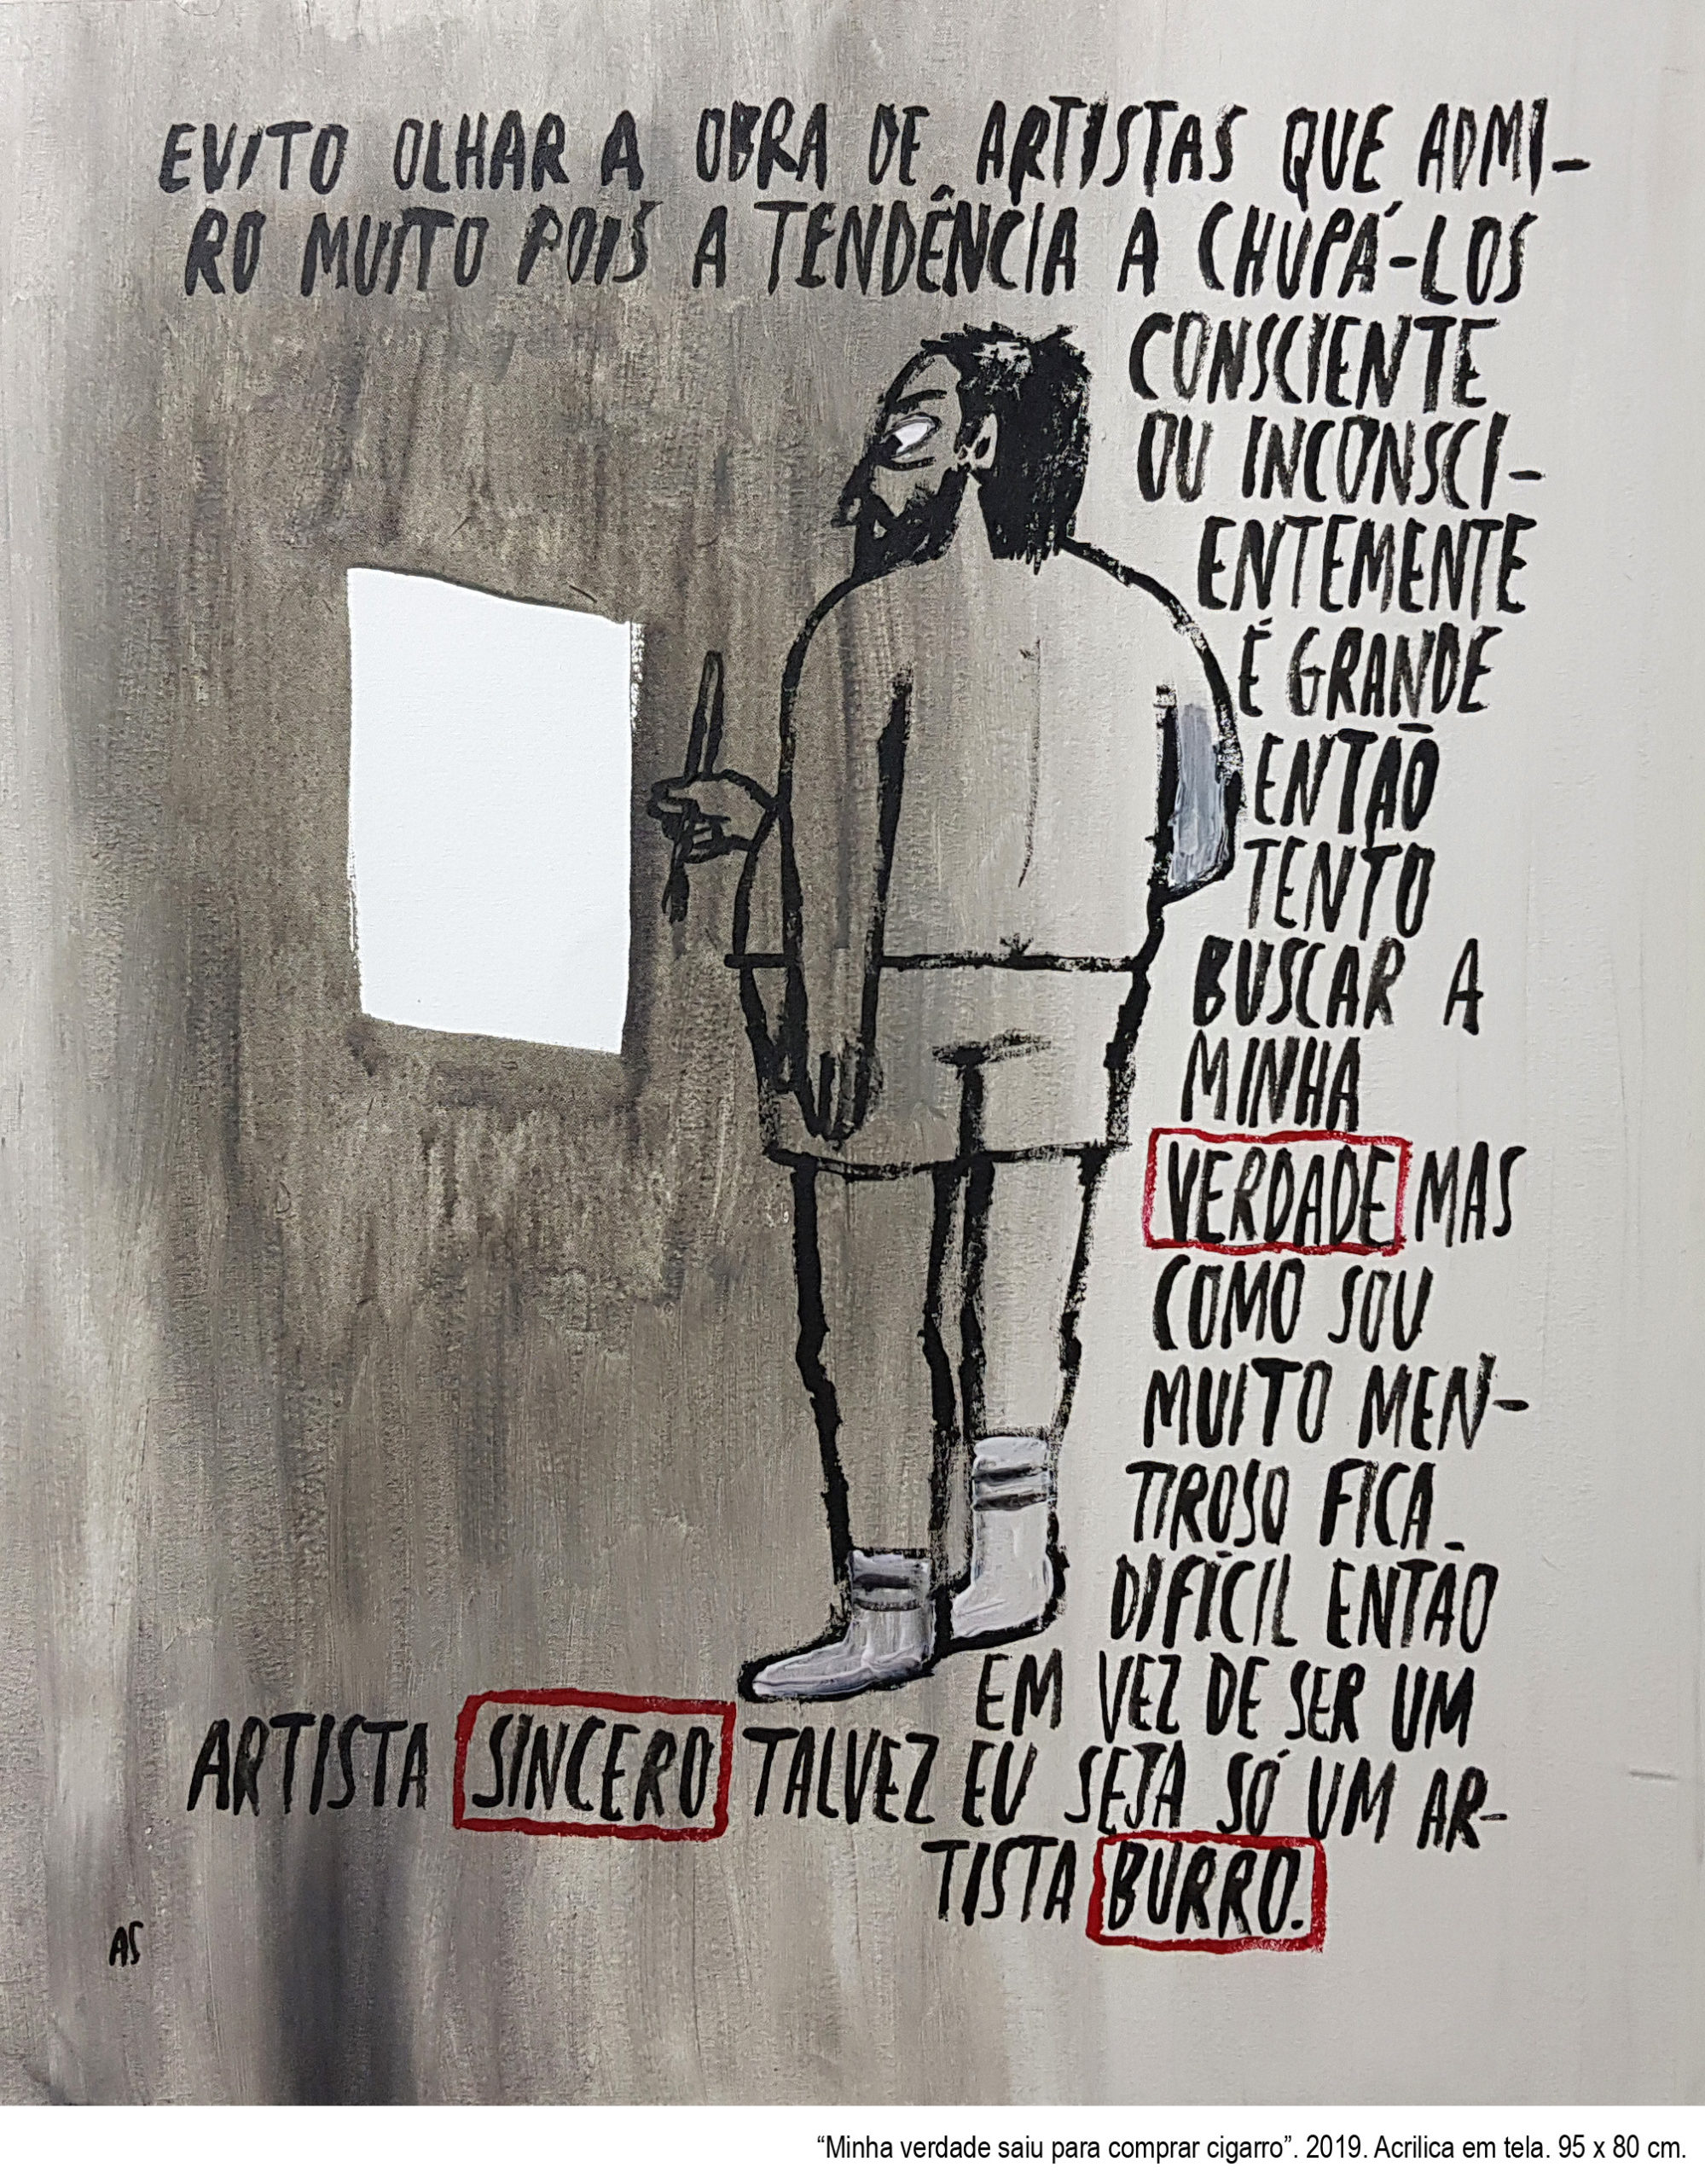 EVITO OLHAR A OBRA DE ARTISTAS QUE ADMI-
RO MUITO POIS A TENDÊNCIA A CHUPÁ-LOS
CONSCIENTE
OU INCONSCI-
ENTEMENTE
É GRANDE
ENTÃO
TENTO
BUSCAR A
MINHA
VERDADE MAS
COMO SOU
MUITO MEN-
TIROSO FICA
DIFÍCIL ENTÃO
EM VEZ DE SER UM
ARTISTA SINCERO TALVEZ EU SEJA SÓ UM AR-
TISTA BURRO.
AS
“Minha verdade saiu para comprar cigarro”. 2019. Acrilica em tela. 95 x 80 cm.